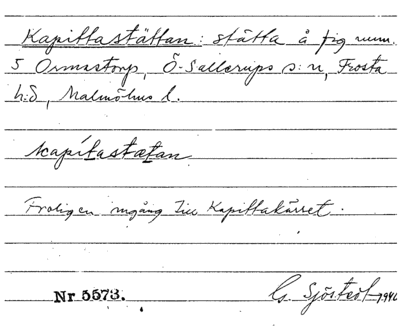 Kapittastättan: stätta å fig num.
5 Ormastorp, Ö-Sallerups s:n, Frosta
h:d, Malmöhus l.
kapítastætan
Troligen ingång till Kapittakärret.
Nr 5573. G. Sjöstedt 1940